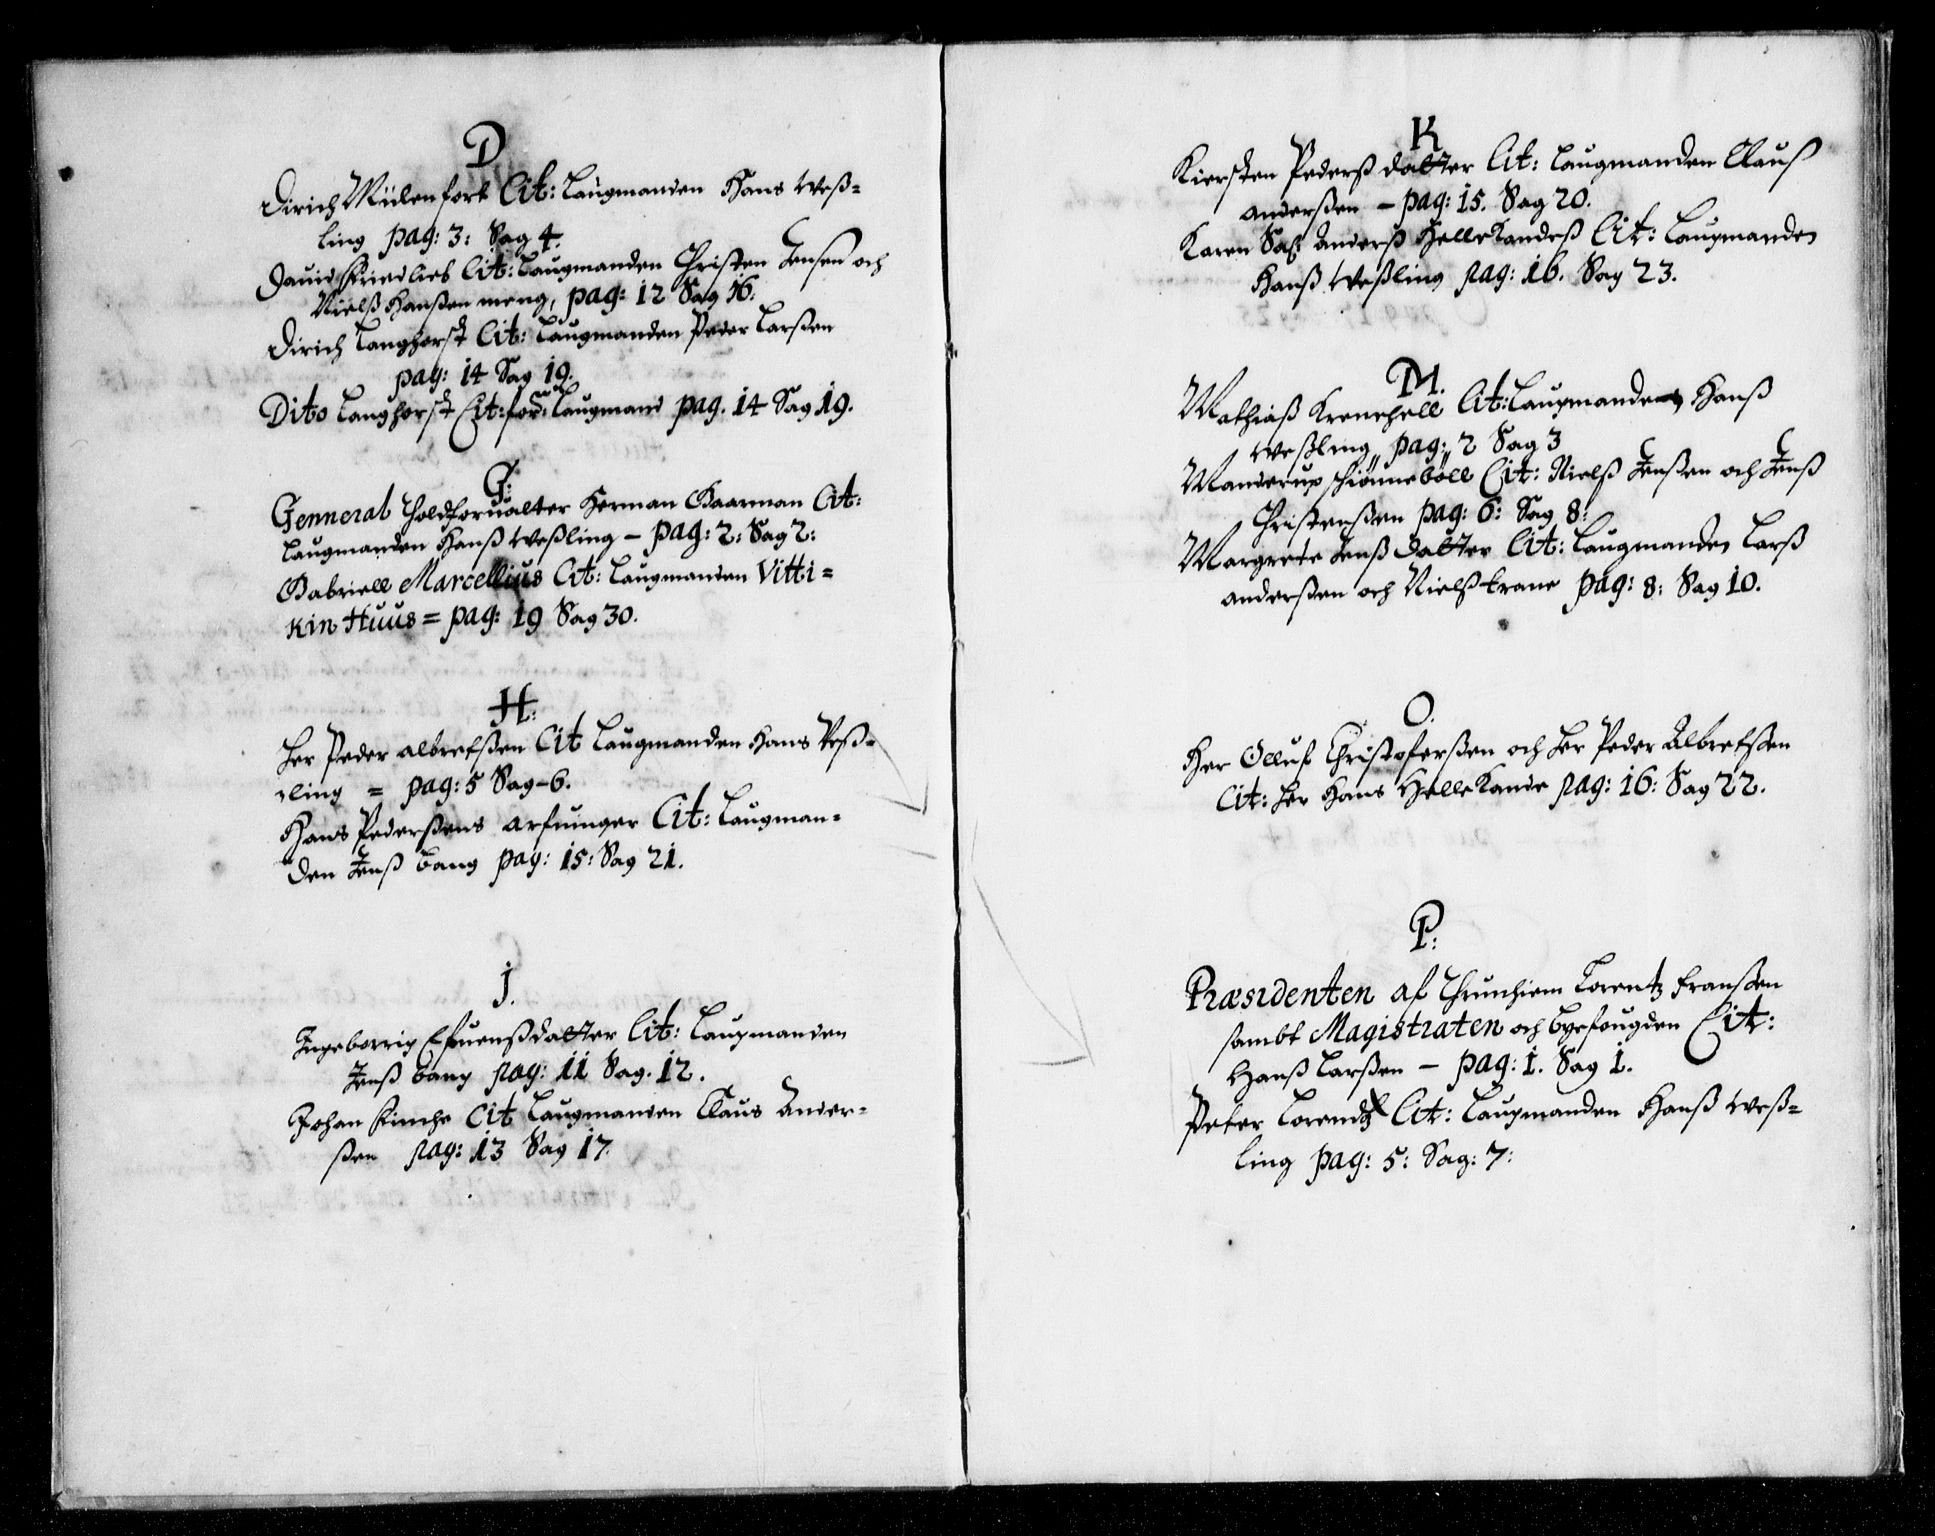 D
Dirich Mülenfort Cit: Laugmanden Hans Weß=
ling pag: 3: Sag 4.
Dauid Friedlieb Cit: Laugmanden Christen Jensen och
Nielß Hanßen meng, pag: 12 Sag 16:
Dirich Langhorst Cit: Laugmanden Peder Larßen
pag: 14 Sag 19.
Dito Langhorst Cit: for: Laugmand pag. 14 Sag 19.
G:
Genneral Toldforualter Herman Gaarman Cit:
Laugmanden Hanß Weßling - pag: 2: Sag 2:
Gabriell Marcellius Cit: Laugmanden Vitti=
kin Huus = pag: 19 Sag 30.
H:
Her Peder albretßen Cit Laugmanden Hans Veß=
ling = pag: 5 Sag-6.
Hans Pederßens arfuinger Cit: Laugman=
den Jenß bang pag: 15: Sag 21.
J.
Ingeborrig Efuenßdatter Cit: Laugmanden
Jenß bang pag: 11 Sag. 12.
Johan Finche Cit Laugmanden Claus Ander=
ßen pag: 13 Sag 17.
K
Kiersten Pederß datter Cit: Laugmanden Clauß
anderßen - pag: 15. Sag 20.
Karen Sal: Anderß Hellekandeß Cit: Laugmanden
Hanß Weßling pag: 16. Sag 23.
M.
Mathiaß Krenchell Cit: Laugmanden Hanß
Weßling,, pag: 2 Sag 3
Manderup schiønneböll Cit: Nielß Jenßen och Jenß
Christenßen pag: 6: Sag 8:
Margrete Jenß datter Cit: Laugmanden Larß
anderßen och Nielß trane pag: 8: Sag 10.
O.
Her Olluf Christoferßen och Her Peder Albretßen
Cit: Her Hans Hellekande pag: 16: Sag 22.
P:
Præsidenten af Thrunhiem Lorentz Franßen
sambt Magistraten och byefougden Cit:
Hanß Larßen - pag: 1. Sag 1.
Peter Lorendtz Cit: Laugmanden Hanß Weß=
ling pag: 5: Sag: 7: